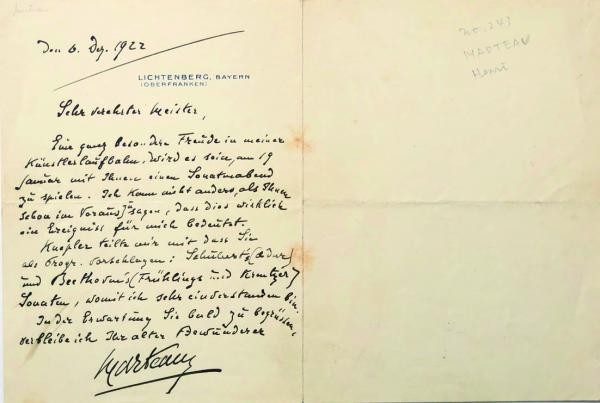 Den 6. Dez. 1922
LICHTENBERG, BAYERN
(OBERFRANKEN)
Sehr verehrter Meister,
Eine ganz besondere Freude in meiner
Künstlerlaufbahn, wird es sein, am 19
Januar mit Ihnen einen Sonatenabend
zu spielen. Ich kann nicht anders, als Ihnen
schon im Voraus zu sagen, dass dies wirklich
ein Ereigniss für mich bedeutet.
Knepler teilte mir mit dass Sie
als Progr. vorschlagen: Schubert (A dur)
und Beethoven's (Frühlings und Kreutzer)
Sonaten, womit ich sehr einverstanden bin.
In der Erwartung Sie bald zu begrüssen,
verbleibe ich Ihr alter Bewunderer
Marteau
no. 243
MARTEAU
Henri